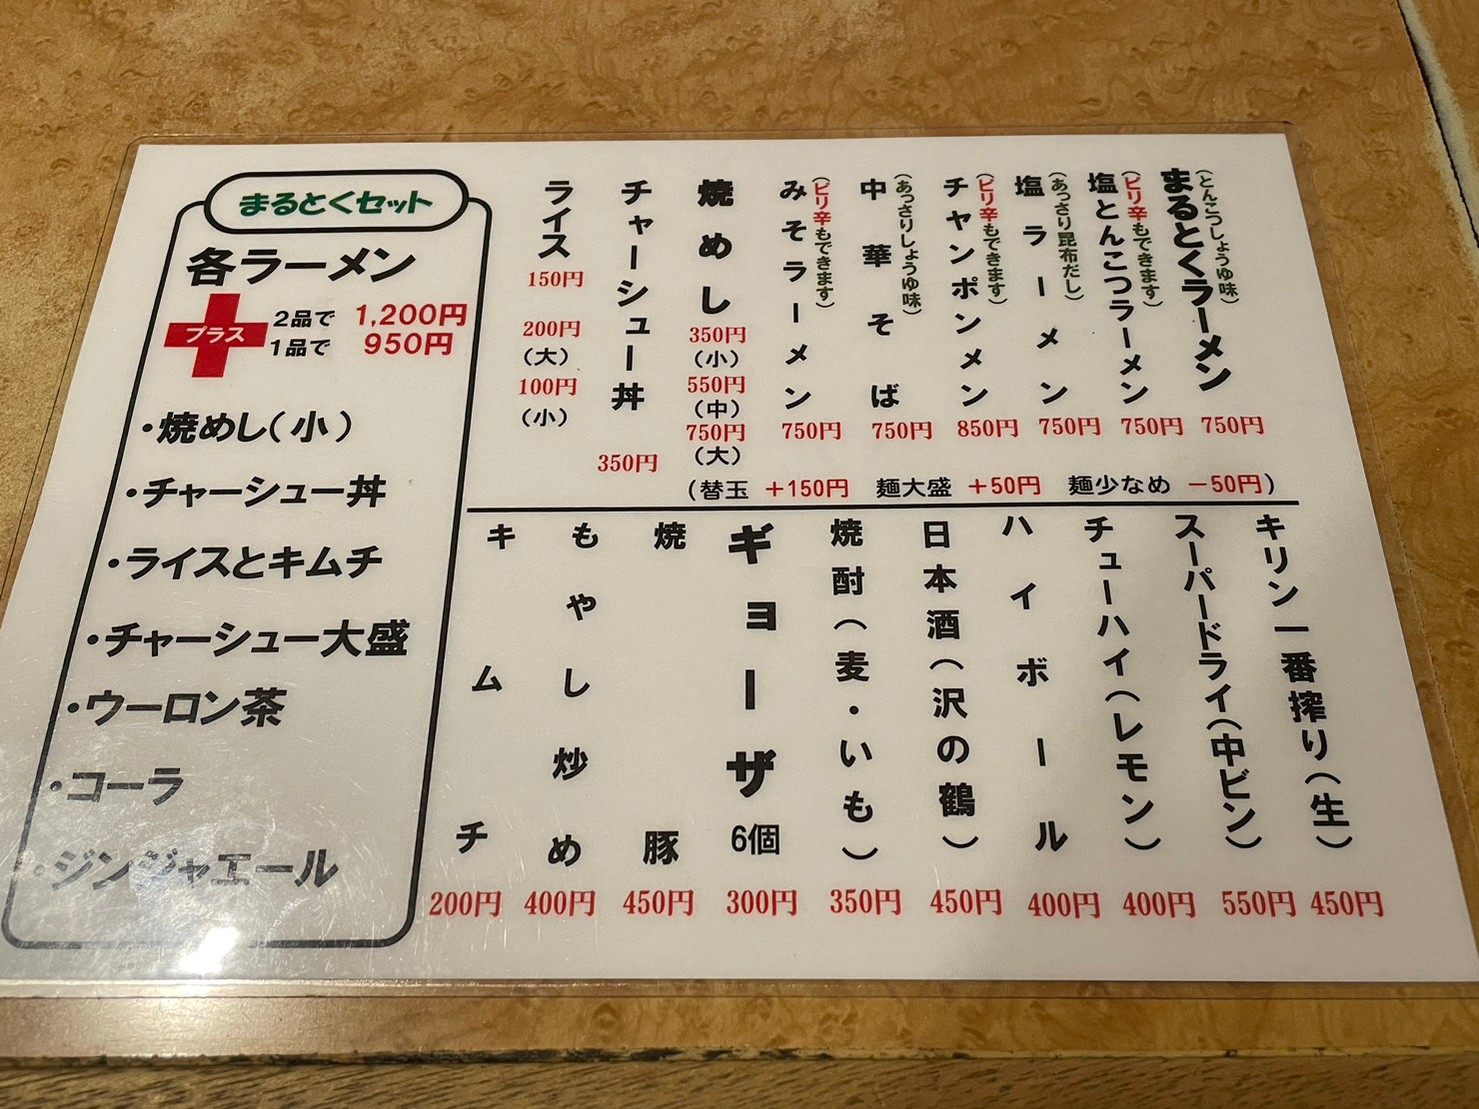 まるとくラーメン
(とんこつしょうゆ味)
750円
塩とんこつラーメン
(ピリ辛もできます)
750円
塩ラーメン
(あっさり昆布だし)
750円
チャンポンメン
(ピリ辛もできます)
850円
中華そば
(あっさりしょうゆ味)
750円
みそラーメン
(ピリ辛もできます)
750円
焼めし
350円
(小)
550円
(中)
750円
(大)
チャーシュー丼
350円
ライス
150円
200円
(大)
100円
(小)
(替玉 +150円 麺大盛 +50円 麺少なめ -50円)
キリン一番搾り(生)
450円
スーパードライ(中ビン)
550円
チューハイ(レモン)
400円
ハイボール
400円
日本酒(沢の鶴)
450円
焼酎(麦・いも)
350円
ギョーザ 6個
300円
焼豚
450円
もやし炒め
400円
キムチ
200円
まるとくセット
各ラーメン
プラス
2品で 1,200円
1品で 950円
・焼めし(小)
・チャーシュー丼
・ライスとキムチ
・チャーシュー大盛
・ウーロン茶
・コーラ
・ジンジャエール